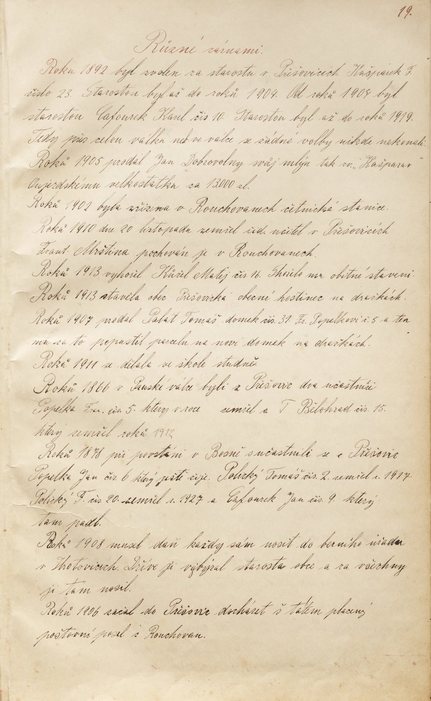 19.
Různé záznami.
Roku 1892 byl zvolen za starostu v Přešovicích Kašpárek F.
číslo 23. Starostou byl až do roků 1904. Od roků 1904 byl
starostou Cafourek Karel čís 10. Starostou byl až do roků 1919.
Tedy přes celou valku neb ve válce se žádné volby nikde nekonali.
Roků 1905 prodal Jan Dobrovolny svůj mlýn tak zv. "Kašparův"
velkostatku za 13000 zl.
Roků 1902 byla zřízena v Rouchovanech četnická stanice.
Roků 1910 dne 20 listopadu zemřel učitel v Přešovicích
Mrština pochován je v Rouchovanech.
Roků 1913 vyhořel Matěj čís 16. Shořelo mu obitné stavení
Roků 1913 stavěla obec Přešovická obecní hostinec na dražkách.
Roků 1907 prodal Tomaš domek čís. 31 Fr. Popelkovi č. 5 a ten
mu za to popustil parcelu na nový domek na dražkách.
Roků 1911 se dělala ve škole studně.
Roků 1866 v Pruské válce byli z Přešovic dva učastníci
Popelka Fra. čís. 5. ktery v roce zemřel a T Bělohrad čís 15.
ktery zemřel roků 1912
Roků 1878 při povstání v Bosně sučastnili se z Přešovic
Popelka Jan čís 6 ktrý ješti žije. Polický Tomaš čís 2. umřel r. 1917.
Polický F. čís 20. zemřel r. 1927 a Cafourek Jan čís. 9. který
tam padl.
Roků 1908 musel daň každy sám nosit do berního uřadu
v Hrotovicích. Dříve je vybýral starosta obce a za všechny
je tam nosil.
Roků 1896 začal do Přešovic docházet s tátem placený
poštovní posel z Rouchovan.